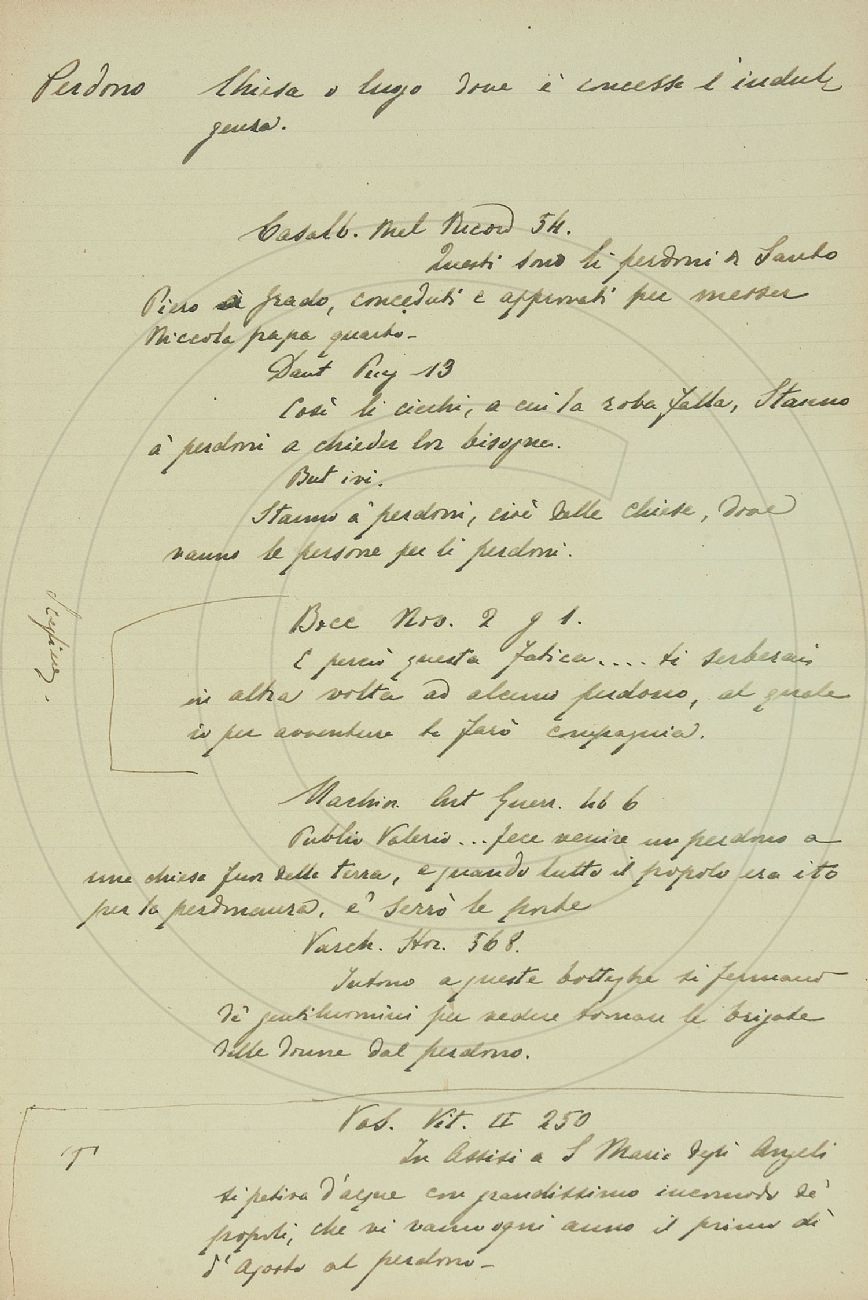 Perdono Chiesa o lugo dove è concesse l'indul
genza.
Casalb. nel Record 54.
Questi sono li perdoni di Santo
Piero à Grado, conceduti e approvati per messer
Niccola papa quarto -
Dant Pug 13
Così li ciechi, a cui la roba falla, Stanno
à perdoni a chieder lor bisogna.
But ivi.
Stanno a' perdoni, cioè delle chiese, dove
vanno le persone per li perdoni.
Bocc Nov. 2 g 1.
E perciò questa fatica.... ti serberai
in altra volta ad alcuno perdono, al quale
io per avventura te farò compagnia.
Machiav. Art Guerr. 46 6
Publio Valerio... fece venire un perdono a
una chiesa fuor della terra, e quando tutto il popolo era ito
per la perdonanza, e' serrò le porte
Varch. Stor. 368.
Intorno a queste botteghe si fermano
de' gentiluomini per vedere tornare le brigate
delle donne dal perdono.
Vas. Vit. II 250
In Assisi a S Maria degli Angeli
si pativa d'acque con grandissimo incomodo de'
popoli, che vi vanno ogni anno il primo dì
d'Agosto al perdono -